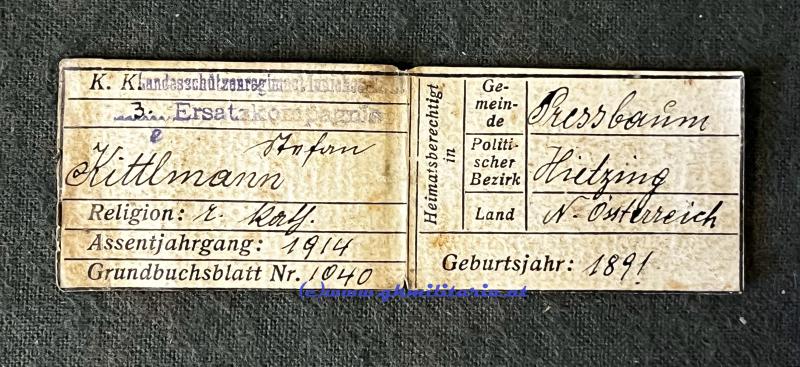 K. K. Landesschützenregiment
3. Ersatzkompagnie
e
Stefan
Kittlmann
Religion: r. kath.
Assentjahrgang: 1914
Grundbuchsblatt Nr. 1040
Heimatsberechtigt in
Gemeinde Pressbaum
Politischer Bezirk Hietzing
Land N. Österreich
Geburtsjahr: 1891